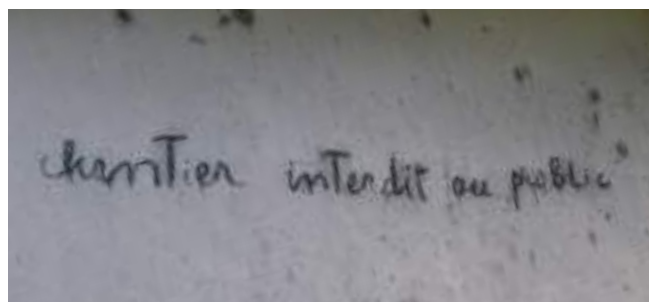 chantier interdit au public